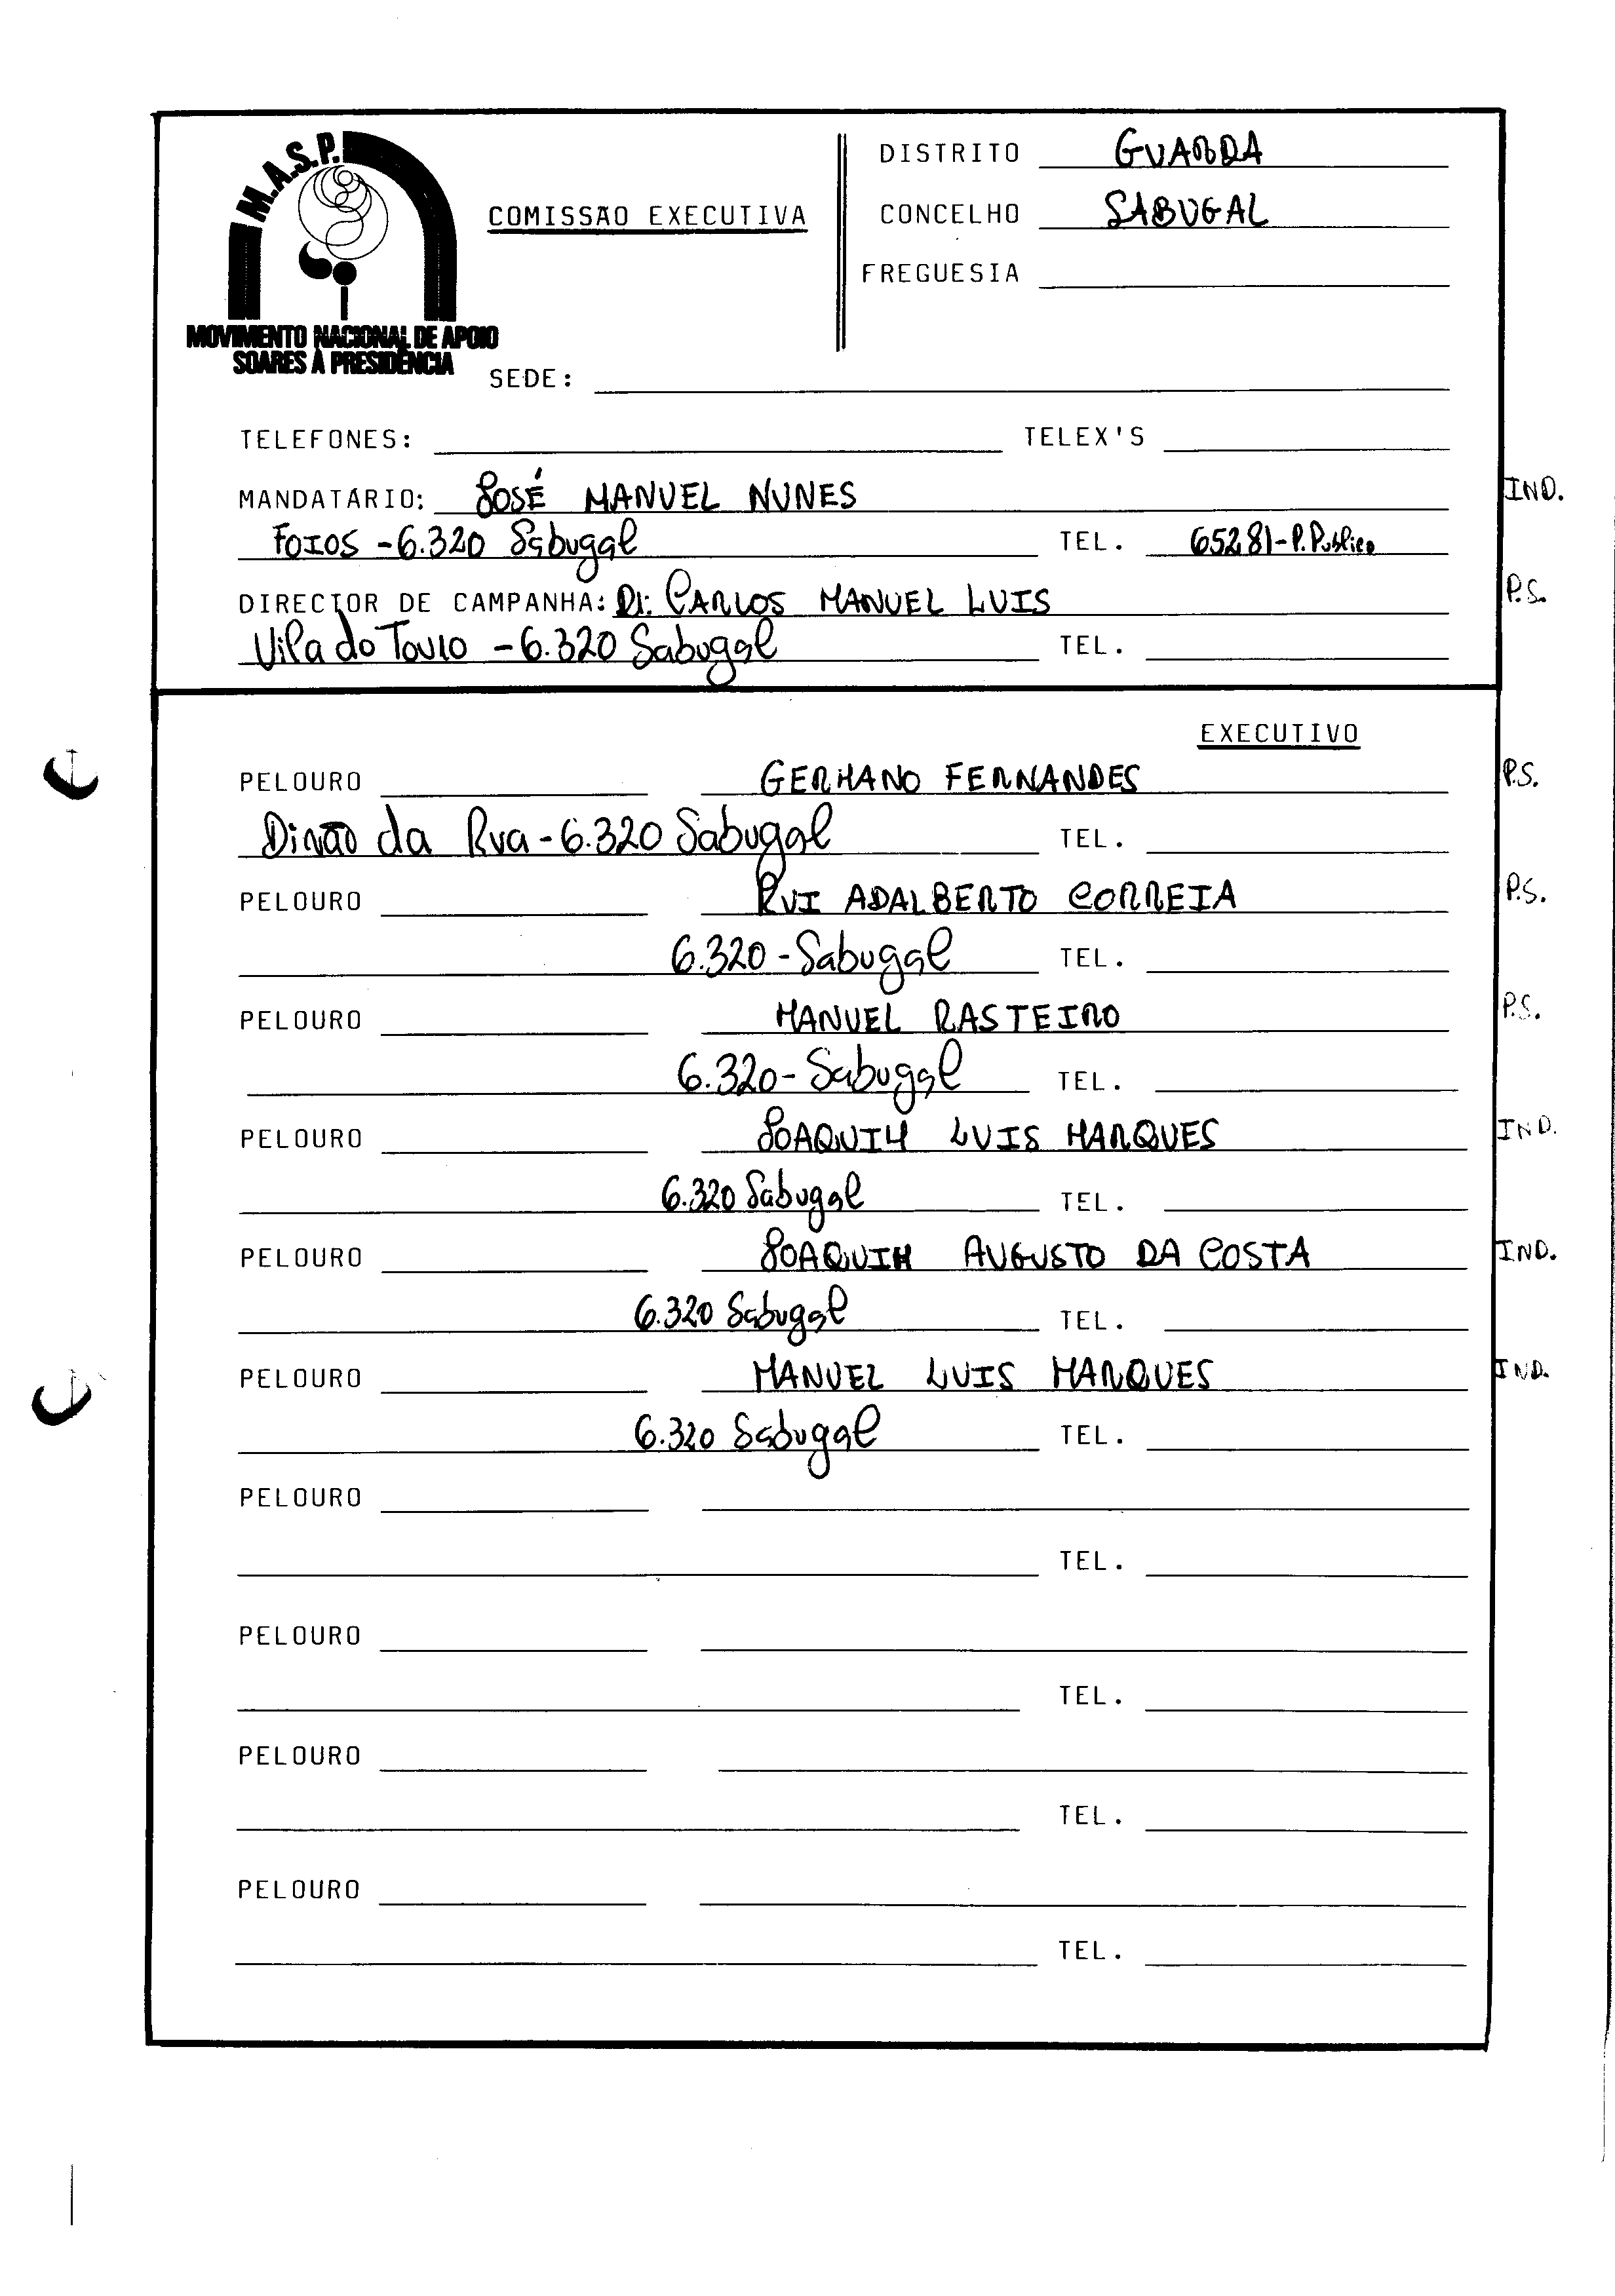 M.A.S.P.
MOVIMENTO NACIONAL DE APOIO
SOARES À PRESIDÊNCIA
COMISSÃO EXECUTIVA
DISTRITO GUARDA
CONCELHO SABUGAL
FREGUESIA
SEDE:
TELEFONES: TELEX'S
MANDATÁRIO: JOSÉ MANUEL NUNES IND.
FOIOS - 6.320 Sabugal TEL. 65281 - P. Publico
DIRECTOR DE CAMPANHA: Dr. CARLOS MANUEL LUIS P.S.
Vila do Touro - 6.320 Sabugal TEL.
EXECUTIVO
PELOURO GERMANO FERNANDES P.S.
da Rua - 6.320 Sabugal TEL.
PELOURO RUI ADALBERTO CORREIA P.S.
6.320 - Sabugal TEL.
PELOURO MANUEL RASTEIRO P.S.
6.320 - Sabugal TEL.
PELOURO JOAQUIM LUIS MARQUES IND.
6.320 Sabugal TEL.
PELOURO JOAQUIM AUGUSTO DA COSTA IND.
6.320 Sabugal TEL.
PELOURO MANUEL LUIS MARQUES IND.
6.320 Sabugal TEL.
PELOURO
TEL.
PELOURO
TEL.
PELOURO
TEL.
PELOURO
TEL.